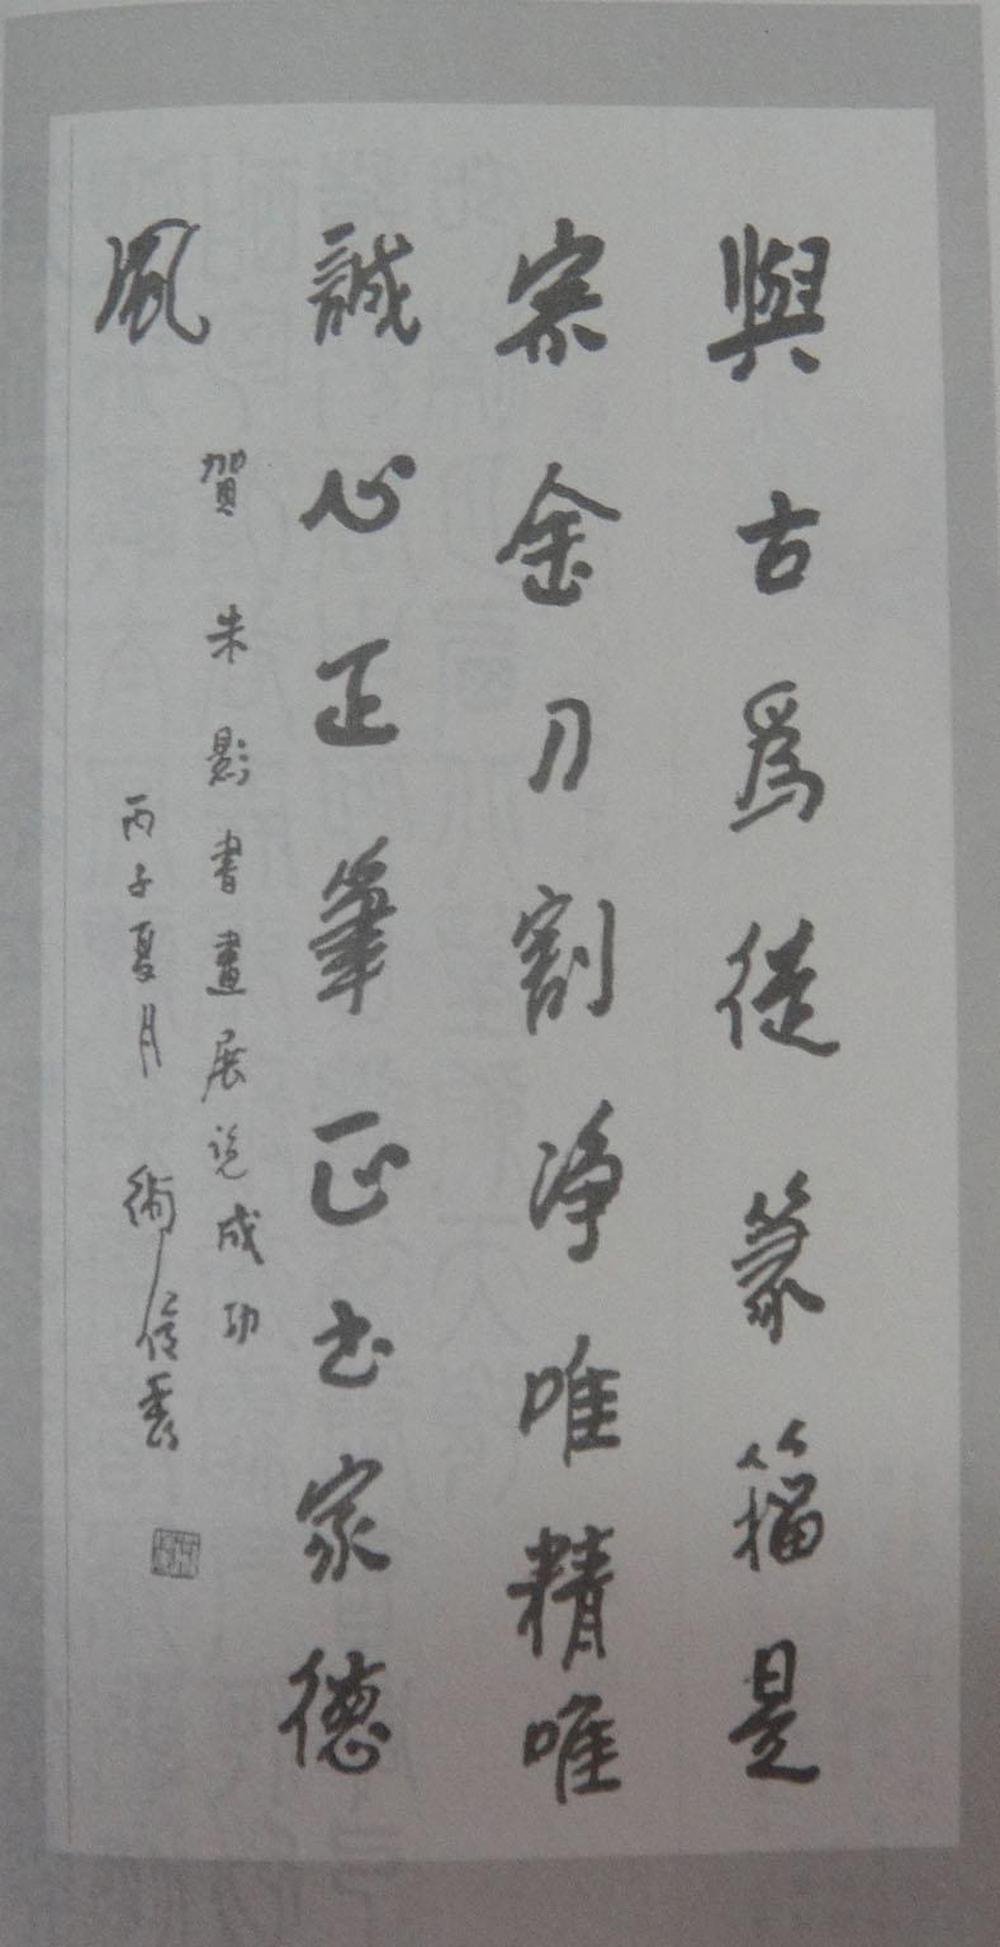 與古爲徒篆籀是
宗金刀割淨唯精唯
誠心正筆正书家德
風
賀朱影書畫展览成功
丙子夏月